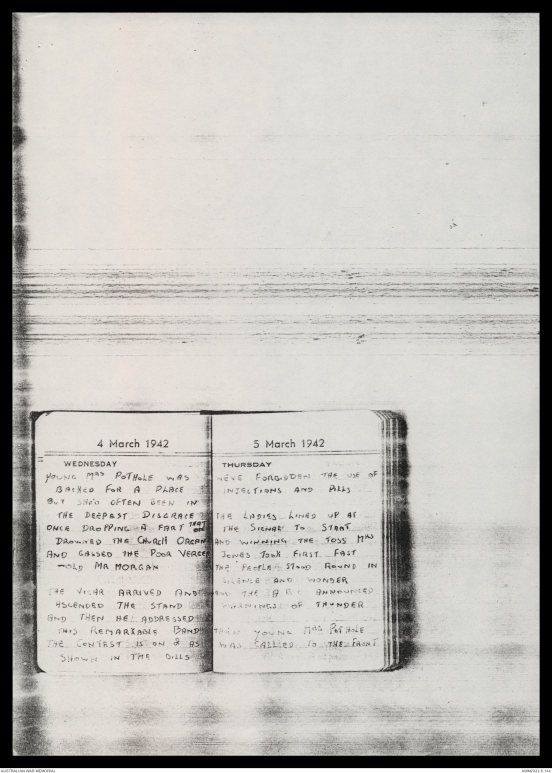 4 March 1942
WEDNESDAY
YOUNG MRS POTHOLE WAS
BACKED FOR A PLACE
BUT SHE'D OFTEN BEEN IN
THE DEEPEST DISGRACE
ONCE DROPPING A FART THAT
DROWNED THE CHURCH ORGAN
AND GASSED THE POOR VERGER
OLD MR MORGAN
THE VICAR ARRIVED AND
ASCENDED THE STAND
AND THEN HE ADDRESSED
THIS REMARKABLE BAND
THE CONTEST IS ON AS
SHOWN IN THE BILLS
5 March 1942
THURSDAY
WE'VE FORBIDDEN THE USE OF
INJECTIONS AND PILLS
THE LADIES LINED UP AT
THE SIGNAL TO START
AND WINNING THE TOSS MRS
JONES TOOK FIRST FART
THE PEOPLE STOOD ROUND IN
SILENCE AND WONDER
AND THE A.B.C. ANNOUNCED
WARNINGS OF THUNDER
THEN YOUNG MRS POTHOLE
WAS CALLED TO THE FRONT
AUSTRALIAN WAR MEMORIAL